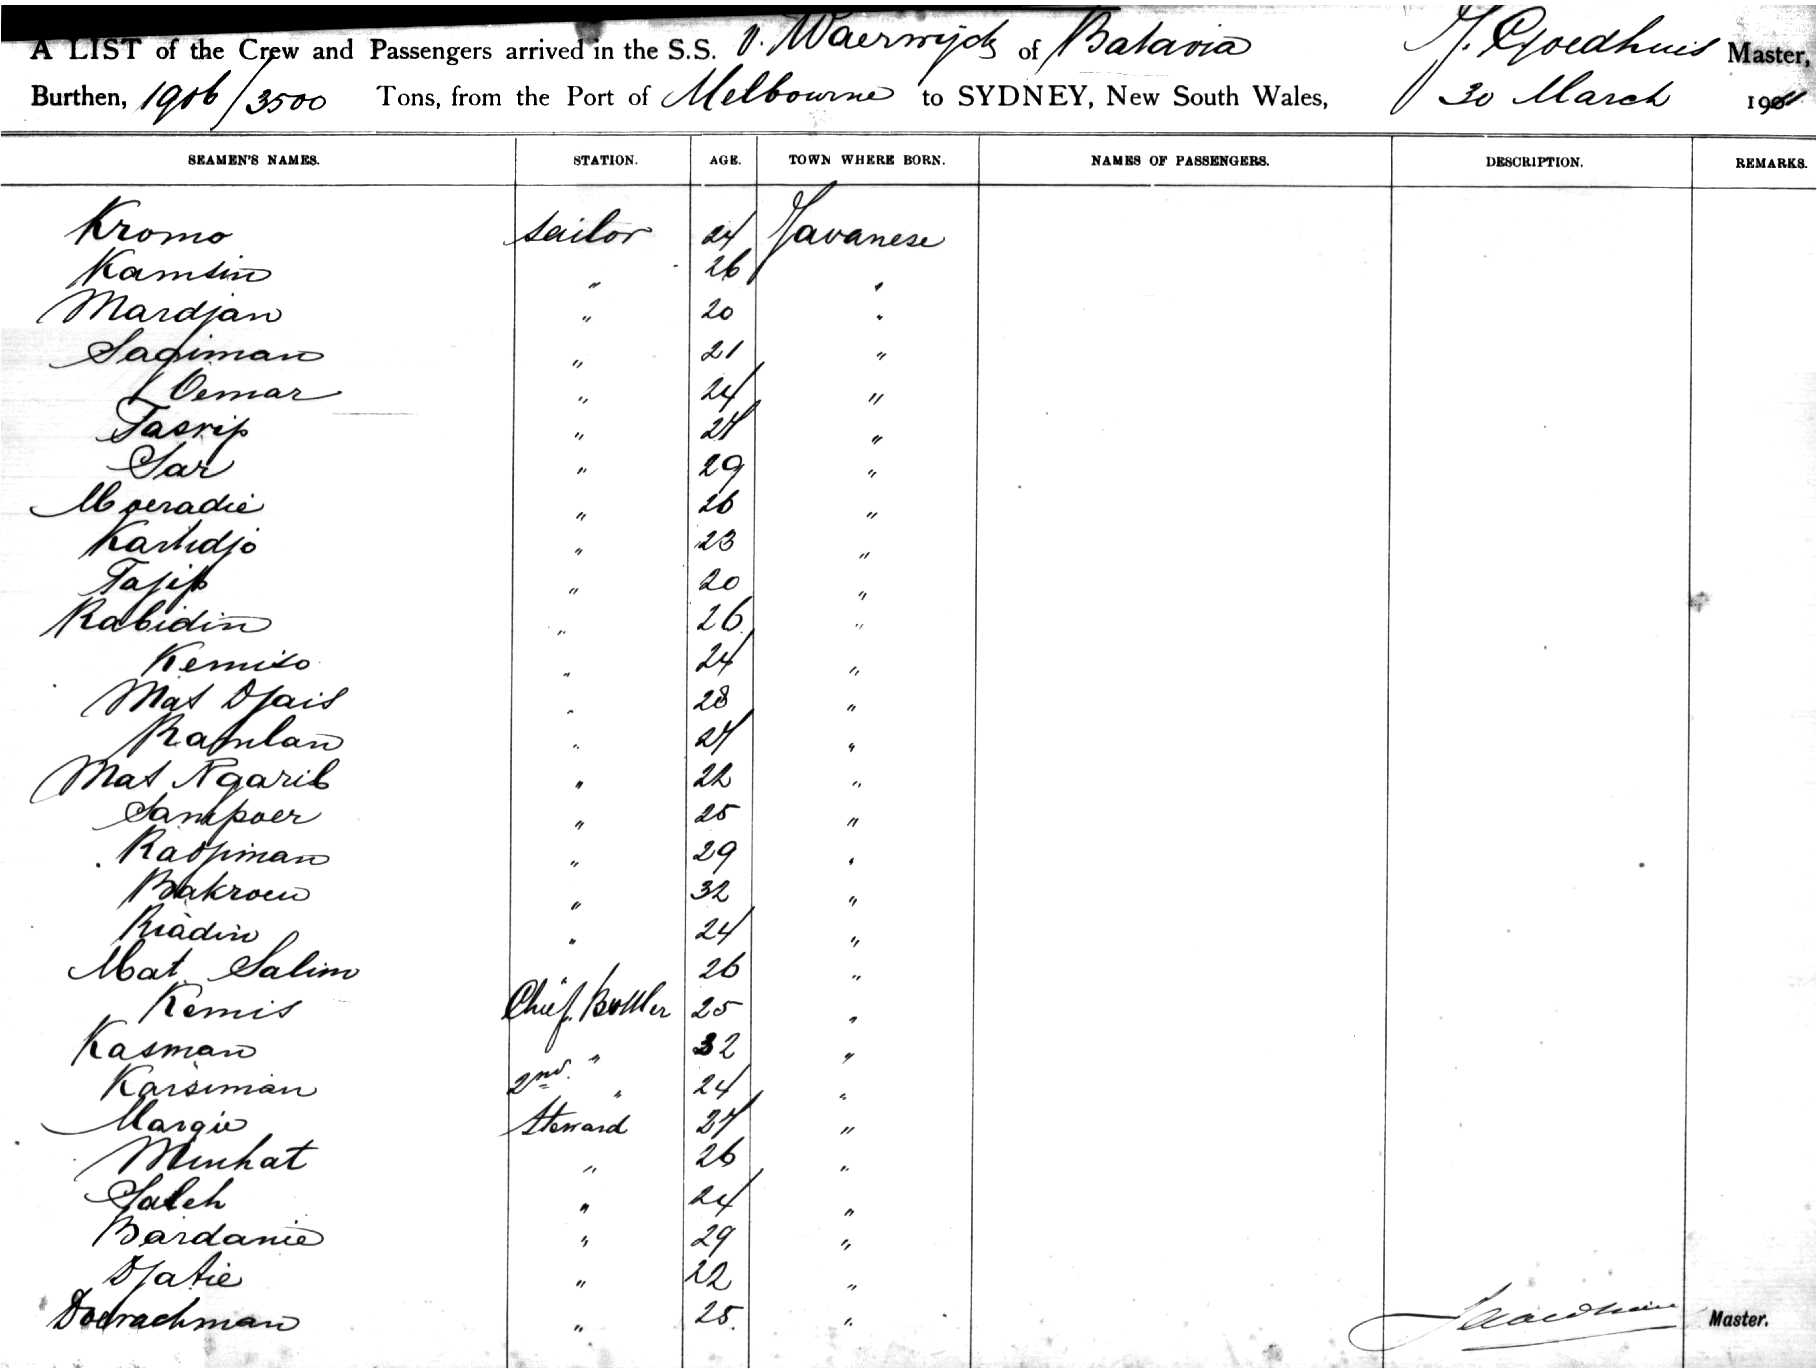 A LIST of the Crew and Passengers arrived in the S.S. v. Waerwijck of Batavia J. Goedhuis Master,
Burthen, 1906/3500 Tons, from the Port of Melbourne to SYDNEY, New South Wales, 30 March 190
SEAMEN'S NAMES. STATION. AGE. TOWN WHERE BORN. NAMES OF PASSENGERS. DESCRIPTION. REMARKS.
Kromo sailor 24 Javanese
Kamsin " 26 "
Mardjan " 20 "
Sagiman " 21 "
Oemar " 24 "
Tasrip " 27 "
Sar " 29 "
Moeradie " 26 "
Kartidjo " 23 "
Tajip " 20 "
Rabidin " 26 "
Kemiso " 24 "
Mat Djais " 28 "
Ramlan " 27 "
Mat Ngarib " 22 "
Sampoer " 25 "
Radjiman " 29 "
Bakroen " 32 "
Riadin " 24 "
Mat Salim 26 "
Kemis Chief Bottler 25 "
Kasman " 32 "
Karsiman 2nd " 24 "
Margie Steward 27 "
Minhat " 26 "
Saleh " 24 "
Bardanie " 29 "
Djatie " 22 "
Doerachman " 25. "
J Goedhuis Master.